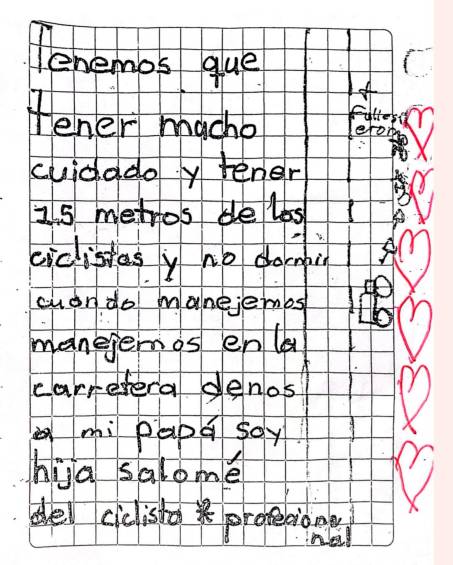 Tenemos que
tener macho
cuidado y tener
1.5 metros de los
ciclistas y no dormir
cuando manejemos
manejemos en la
carretera denos
a mi papá soy
hija salomé
del ciclista * profecional
nal